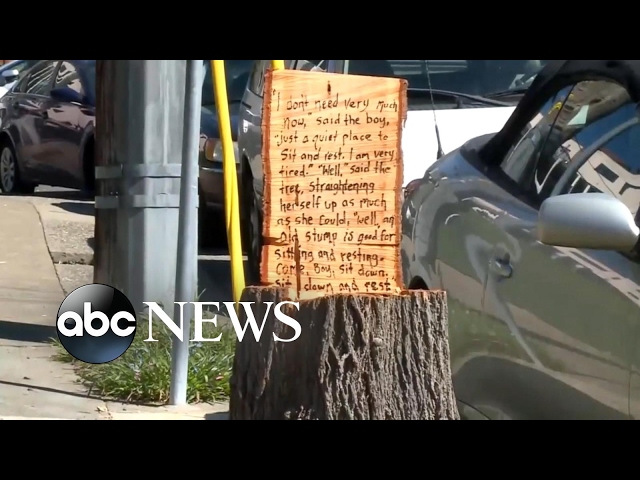 "I don't need very much
now," said the boy,
"Just a quiet place to
Sit and rest. I am very
tired." "Well," said the
tree, straightening
herself up as much
as she could, "well, an
old stump is good for
sitting and resting.
Come, Boy, sit down,
sit down and rest.
abc NEWS